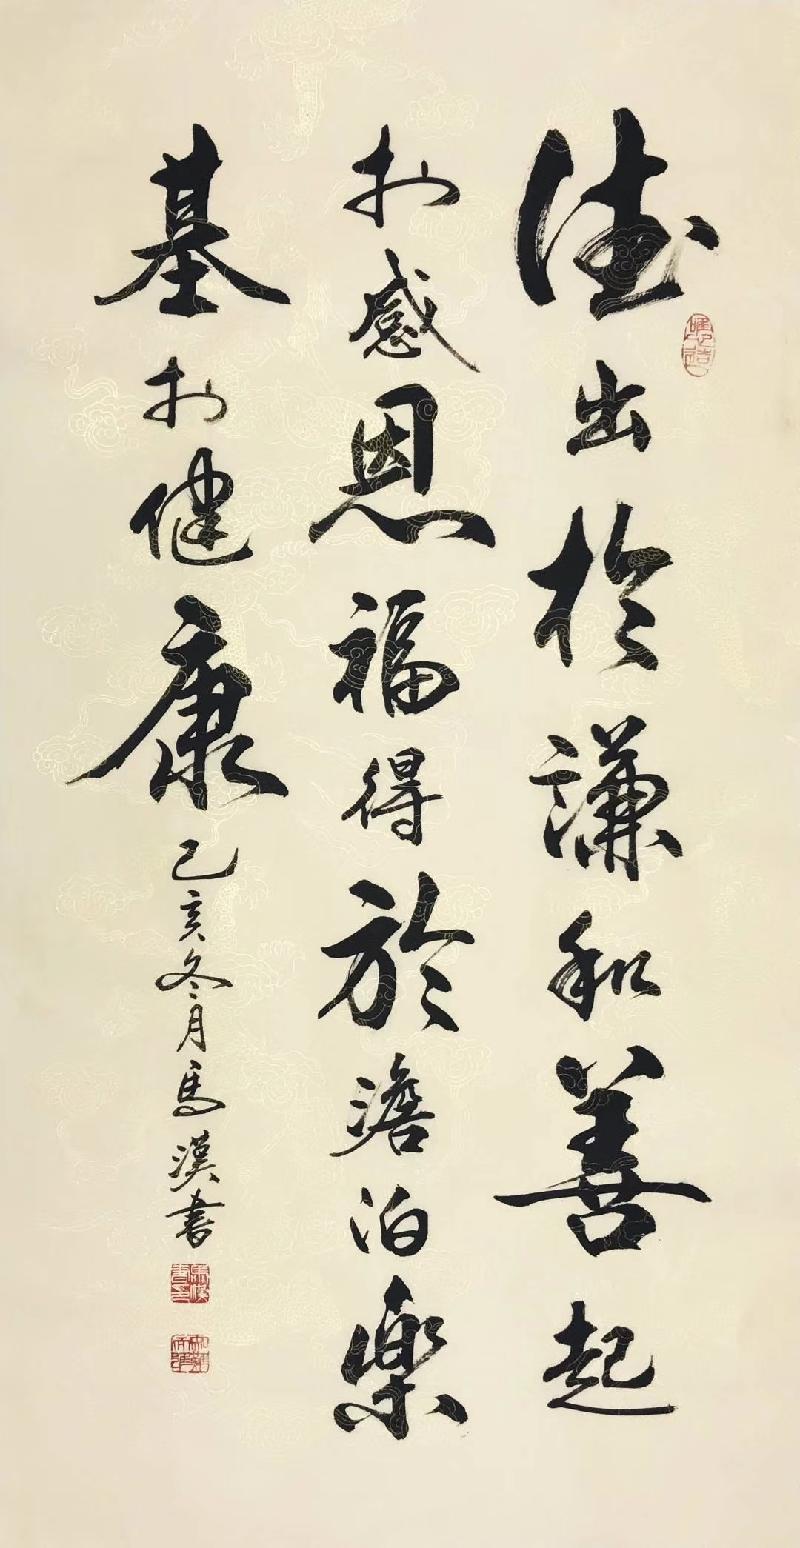 德出於謙和善起
於感恩福得於澹泊樂
基於健康
己亥冬月馬漢書